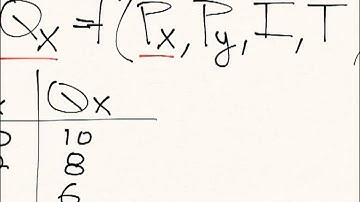 Qx = f(Px, Py, I, T
Qx
10
8
6